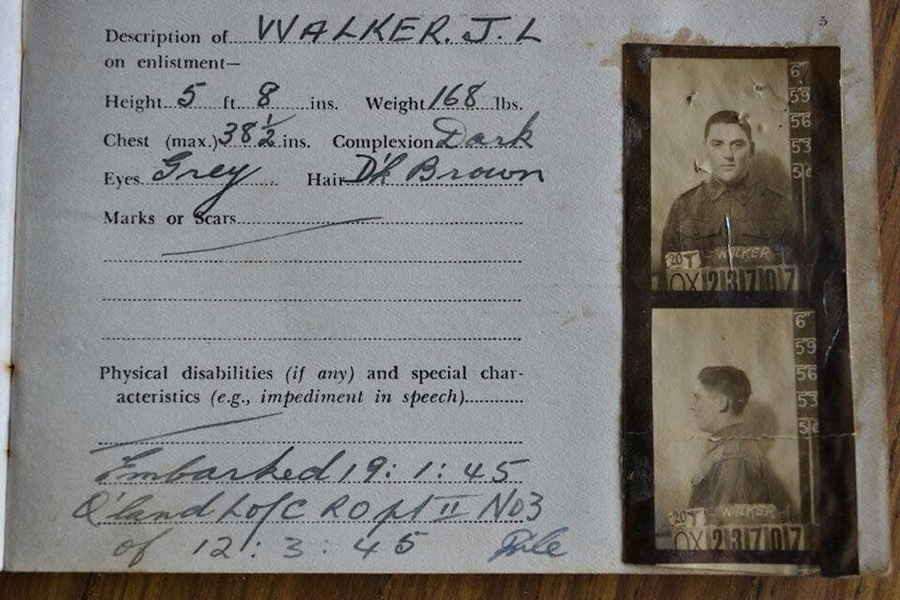 5
Description of WALKER. J. L
on enlistment—
Height 5 ft. 8 ins. Weight 168 lbs.
Chest (max.) 38½ ins. Complexion Dark
Eyes Grey Hair Dk Brown
Marks or Scars
Physical disabilities (if any) and special char-
acteristics (e.g., impediment in speech)
Embarked 19: 1: 45
Q'land L of C RO pt II No3
of 12: 3: 45
6"
59
56
53
50
20T - WALKER -
QX 123707
6"
59
56
53
50
20T - WALKER
QX 123707